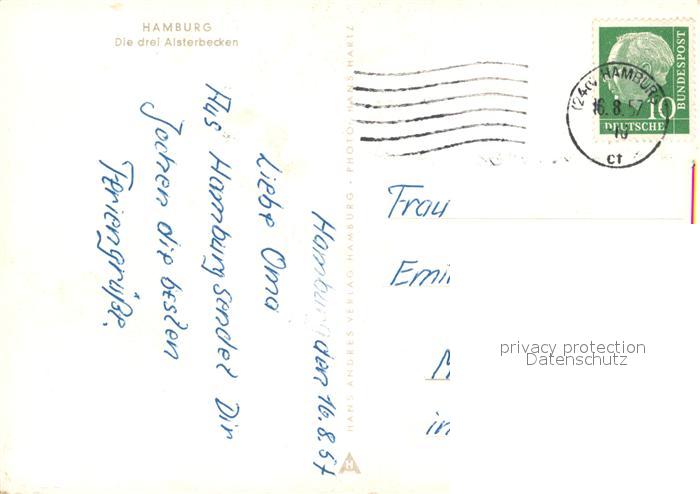 HAMBURG
Die drei Alsterbecken
Hamburg den 16.8.57
Liebe Oma
Aus Hamburg sendet Dir
Jochen die besten
Feriengrüße.
HANS ANDRES VERLAG HAMBURG · PHOTO: HANS HARTZ
H
DEUTSCHE
BUNDESPOST
10
HAMBURG
16.8.57
Frau
Emi
M
in
privacy protection
Datenschutz